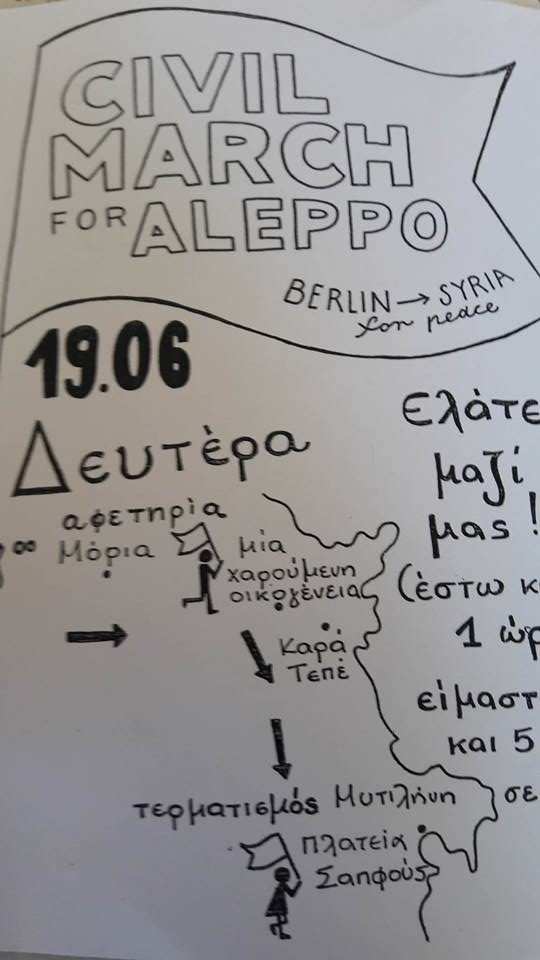 CIVIL
MARCH
FOR ALEPPO
BERLIN → SYRIA
for peace
19.06
Δευτέρα
αφετηρία
Μόρια
μία
χαρούμενη
οικογένεια
Καρά
Τεπέ
τερματισμός Μυτιλήνη
Πλατεία
Σαπφούς
ελάτε
μαζί
μας!
(έστω κ
1 ώρ
είμαστ
και 5
σε